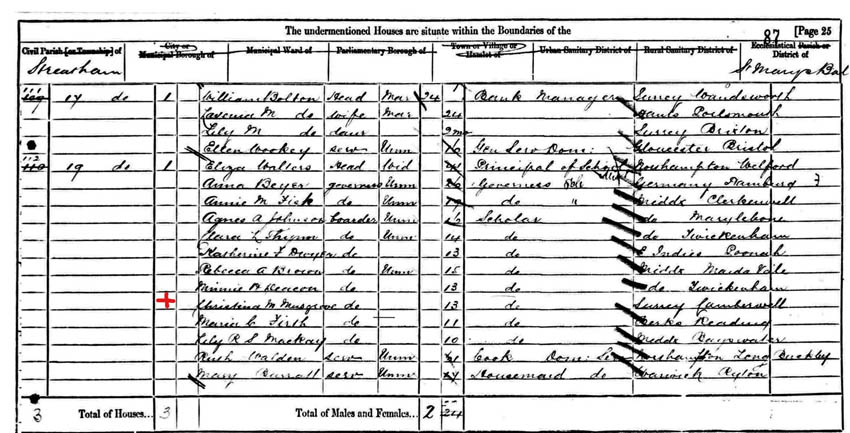 The undermentioned Houses are situate within the Boundaries of the
87 [Page 25
Civil Parish [or Township] of City or Municipal Borough of Municipal Ward of Parliamentary Borough of Town or Village or Hamlet of Urban Sanitary District of Rural Sanitary District of Ecclesiastical Parish or District of
Streatham St Marys Bal
111 109 17 do 1 William Bolton Head Mar 24 Bank Manager Surrey Wandsworth
M do wife Mar 24 Hants Portsmouth
Lily M do daur 2 mo Surrey Brixton
Ellen Wookey serv Unm Gen Serv Dom: Gloucester Bristol
112 110 19 do 1 Eliza Walters Head Wid Principal of School Northampton Welford
Anna Beyer governess Unm Governess Germany Hamburg
Annie M Fisk do Unm do " Middx Clerkenwell
Agnes A Johnson Boarder Unm Scholar do Marylebone
Clara L do Unm 14 do do Twickenham
Katherine F Dwyer do 13 do E Indies Poonah
Rebecca A Brown do Unm 15 do Middx Maida Vale
Minnie Deacon do 13 do do Twickenham
Christina M Musgrove do 13 do Surrey Camberwell
Maria C Firth do 11 do Berks Reading
Lily R S Mackay do 10 do Middx Bayswater
Ruth Walden serv Unm Cook Dom: Serv Northampton Long Buckley
Mary Burrall serv Unm Housemaid do Warwick Ryton
3 Total of Houses... 3 Total of Males and Females... 2 24